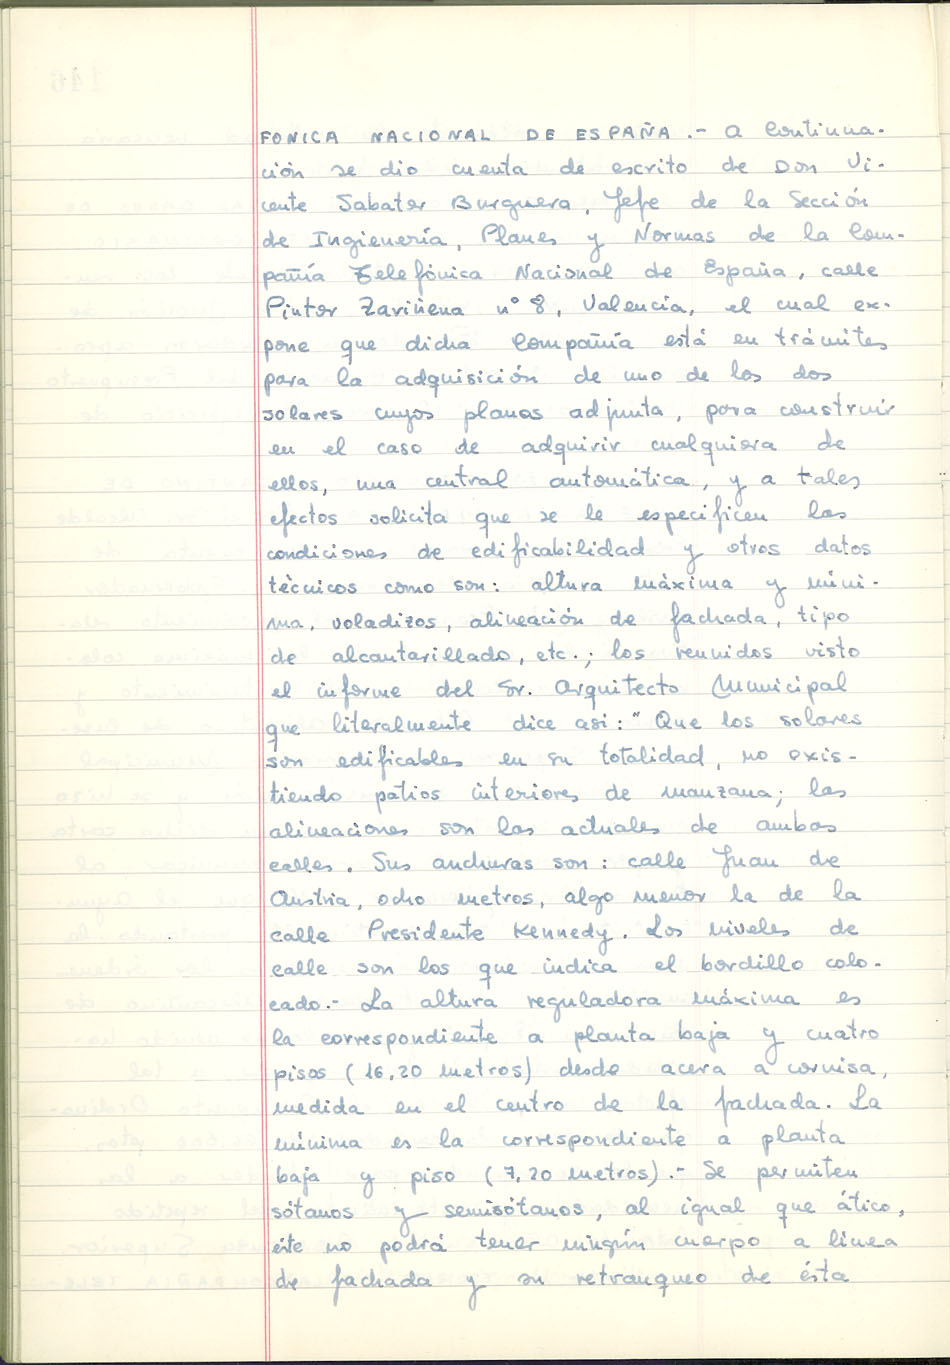 FONICA NACIONAL DE ESPAÑA.- a continua-
ción se dio cuenta de escrito de Don Vi-
cente Sabater Burguera, Jefe de la Sección
de Ingienería, Planes y Normas de la Com-
pañía Telefónica Nacional de España, calle
Pintor Zariñena nº 8, Valencia, el cual ex-
pone que dicha Compañía está en trámites
para la adquisición de uno de los dos
solares cuyos planos adjunta, para construir
en el caso de adquirir cualquiera de
ellos, una central automática, y a tales
efectos solicita que se le especificen las
condiciones de edificabilidad y otros datos
técnicos como son: altura máxima y míni-
ma, voladizos, alineación de fachada, tipo
de alcantarillado, etc.; los reunidos visto
el informe del Sr. Arquitecto Municipal
que literalmente dice asi: "Que los solares
son edificables en su totalidad, no exis-
tiendo patios interiores de manzana; las
alineaciones son las actuales de ambas
calles. Sus anchuras son: calle Juan de
Austria, ocho metros, algo menor la de la
calle Presidente Kennedy. Los niveles de
calle son los que indica el bordillo colo-
cado.- La altura reguladora máxima es
la correspondiente a planta baja y cuatro
pisos (16,20 metros) desde acera a cornisa,
medida en el centro de la fachada. La
mínima es la correspondiente a planta
baja y piso (7,20 metros).- Se permiten
sótanos y semisótanos, al igual que ático,
éste no podrá tener ningún cuerpo a línea
de fachada y su retranqueo de ésta